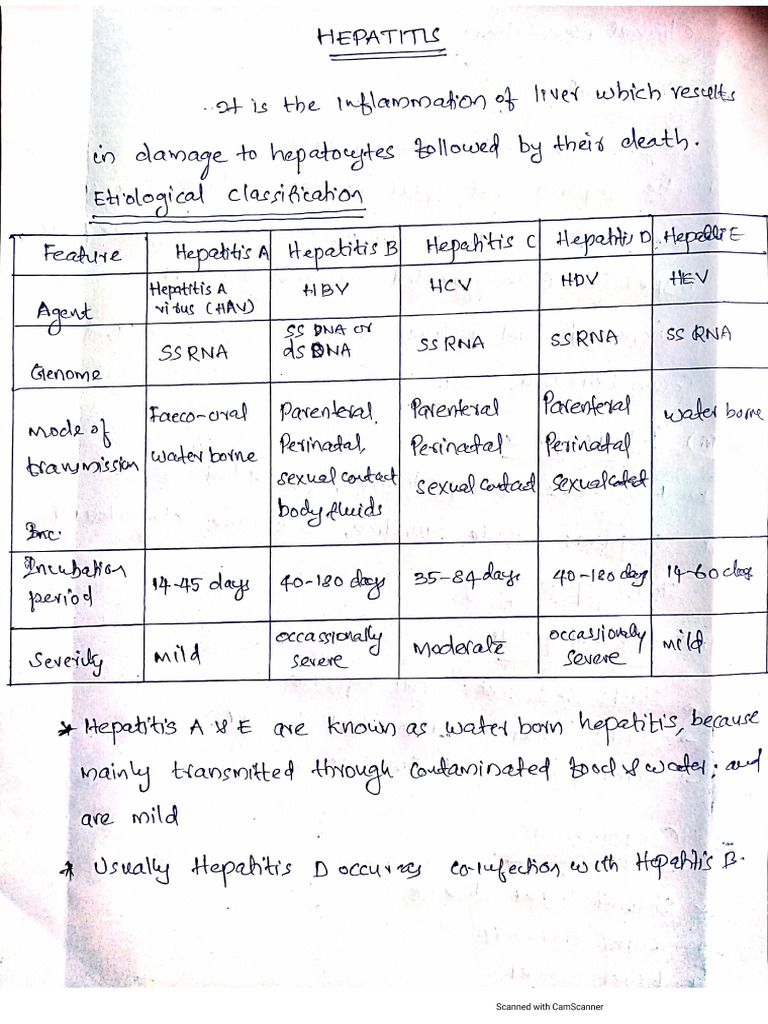 HEPATITIS
It is the inflammation of liver which results
in damage to hepatocytes followed by their death.
Etiological classification
Feature Hepatitis A Hepatitis B Hepatitis C Hepatitis D Hepatitis E
Agent Hepatitis A virus (HAV) HBV HCV HDV HEV
Genome SS RNA SS DNA or ds DNA SS RNA SS RNA SS RNA
Mode of transmission Faeco-oral water borne Parenteral, Perinatal, sexual contact body fluids Parenteral Perinatal sexual contact Parenteral Perinatal sexual contact water borne
Inc.
Incubation period 14-45 days 40-180 days 35-84 days 40-180 day 14-60 days
Severity mild occassionally severe Moderate occassionally severe mild
* Hepatitis A & E are known as water born hepatitis, because
mainly transmitted through contaminated food & water; and
are mild
* Usually Hepatitis D occures co-infection with Hepatitis B.
Scanned with CamScanner